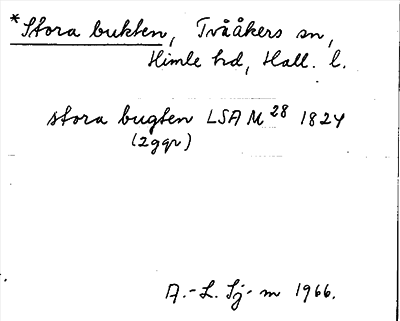 *Stora bukten, Tvååkers sn,
Himle hd, Hall. l.
stora bugten LSA M 28 1824
(2ggr)
A.-L. Sj-m 1966.